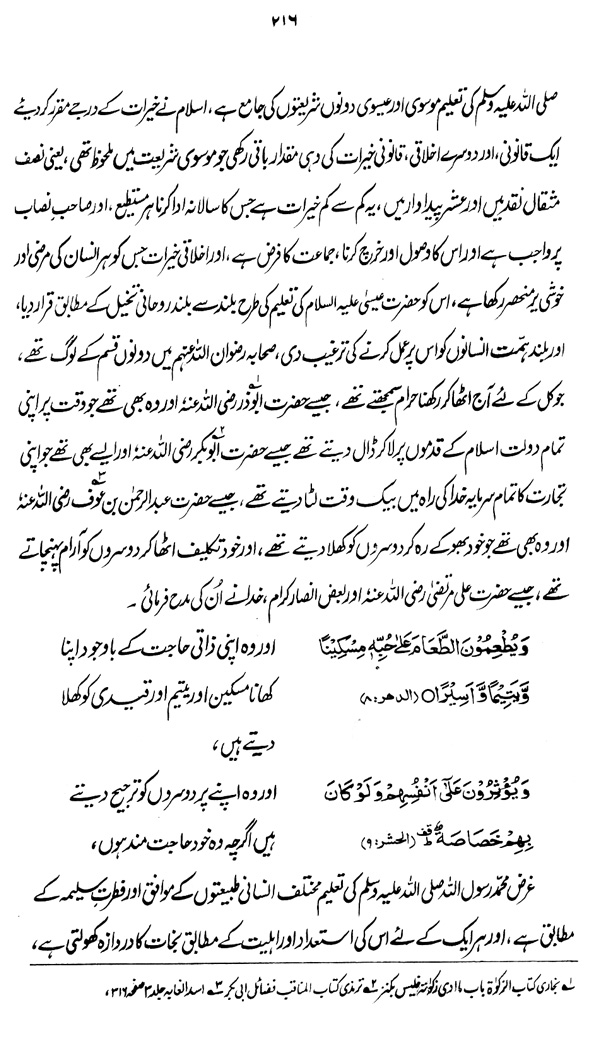 ۲۱۶
صلی اللہ علیہ وسلم کی تعلیم موسوی اور عیسوی دونوں شریعتوں کی جامع ہے، اسلام نے خیرات کے درجے مقرر کر دیئے
ایک قانونی، اور دوسرے اخلاقی، قانونی خیرات کی وہی مقدار باقی رکھی جو موسوی شریعت میں ملحوظ تھی، یعنی نصف
مثقال نقد میں اور عشر پیداوار میں، یہ کم سے کم خیرات ہے جس کا سالانہ ادا کرنا ہر مستطیع، اور صاحبِ نصاب
پر واجب ہے اور اس کا وصول اور خرچ کرنا، جماعت کا فرض ہے، اور اخلاقی خیرات جس کو ہر انسان کی مرضی اور
خوشی پر منحصر رکھا ہے، اس کو حضرت عیسیٰ علیہ السلام کی تعلیم کی طرح بلند سے بلند روحانی تخیل کے مطابق قرار دیا،
اور بلند ہمت انسانوں کو اس پر عمل کرنے کی ترغیب دی، صحابہ رضوان اللہ عنہم میں دونوں قسم کے لوگ تھے،
جو کل کے لئے آج اٹھا کر رکھنا حرام سمجھتے تھے، جیسے حضرت ابوذر رضی اللہ عنہٗ اور وہ بھی تھے جو وقت پر اپنی
تمام دولت اسلام کے قدموں پر لا کر ڈال دیتے تھے جیسے حضرت ابوبکر رضی اللہ عنہٗ اور ایسے بھی تھے جو اپنی
تجارت کا تمام سرمایہ خدا کی راہ میں بیک وقت لٹا دیتے تھے، جیسے حضرت عبدالرحمٰن بن عوف رضی اللہ عنہٗ
اور وہ بھی تھے جو خود بھوکے رہ کر دوسروں کو کھلا دیتے تھے، اور خود تکلیف اٹھا کر دوسروں کو آرام پہنچاتے
تھے، جیسے حضرت علی مرتضیٰ رضی اللہ عنہٗ اور بعض انصار کرام، خدا نے اُن کی مدح فرمائی۔
وَيُطْعِمُوْنَ الطَّعَامَ عَلٰى حُبِّهٖ مِسْكِيْنًا اور وہ اپنی ذاتی حاجت کے باوجود اپنا
وَّيَتِيْمًا وَّاَسِيْرًا (الدھر:۸) کھانا مسکین اور یتیم اور قیدی کو کھلا
دیتے ہیں،
وَيُؤْثِرُوْنَ عَلٰٓى اَنْفُسِهِمْ وَلَوْ كَانَ اور وہ اپنے پر دوسروں کو ترجیح دیتے
بِهِمْ خَصَاصَةٌ ؕقف (الحشر:۹) ہیں اگرچہ وہ خود حاجت مند ہوں،
غرض محمد رسول اللہ صلی اللہ علیہ وسلم کی تعلیم مختلف انسانی طبیعتوں کے موافق اور فطرتِ سلیمہ کے
مطابق ہے، اور ہر ایک کے لئے اس کی استعداد اور اہلیت کے مطابق نجات کا دروازہ کھولتی ہے،
۱؎ بخاری کتاب الزکوٰۃ باب ما ادی زکوٰتہ فلیس بکنز ۲؎ ترمذی کتاب المناقب فضائل ابی بکر ۳؎ اسد الغابہ جلد ۳ صفحہ ۳۱۶،